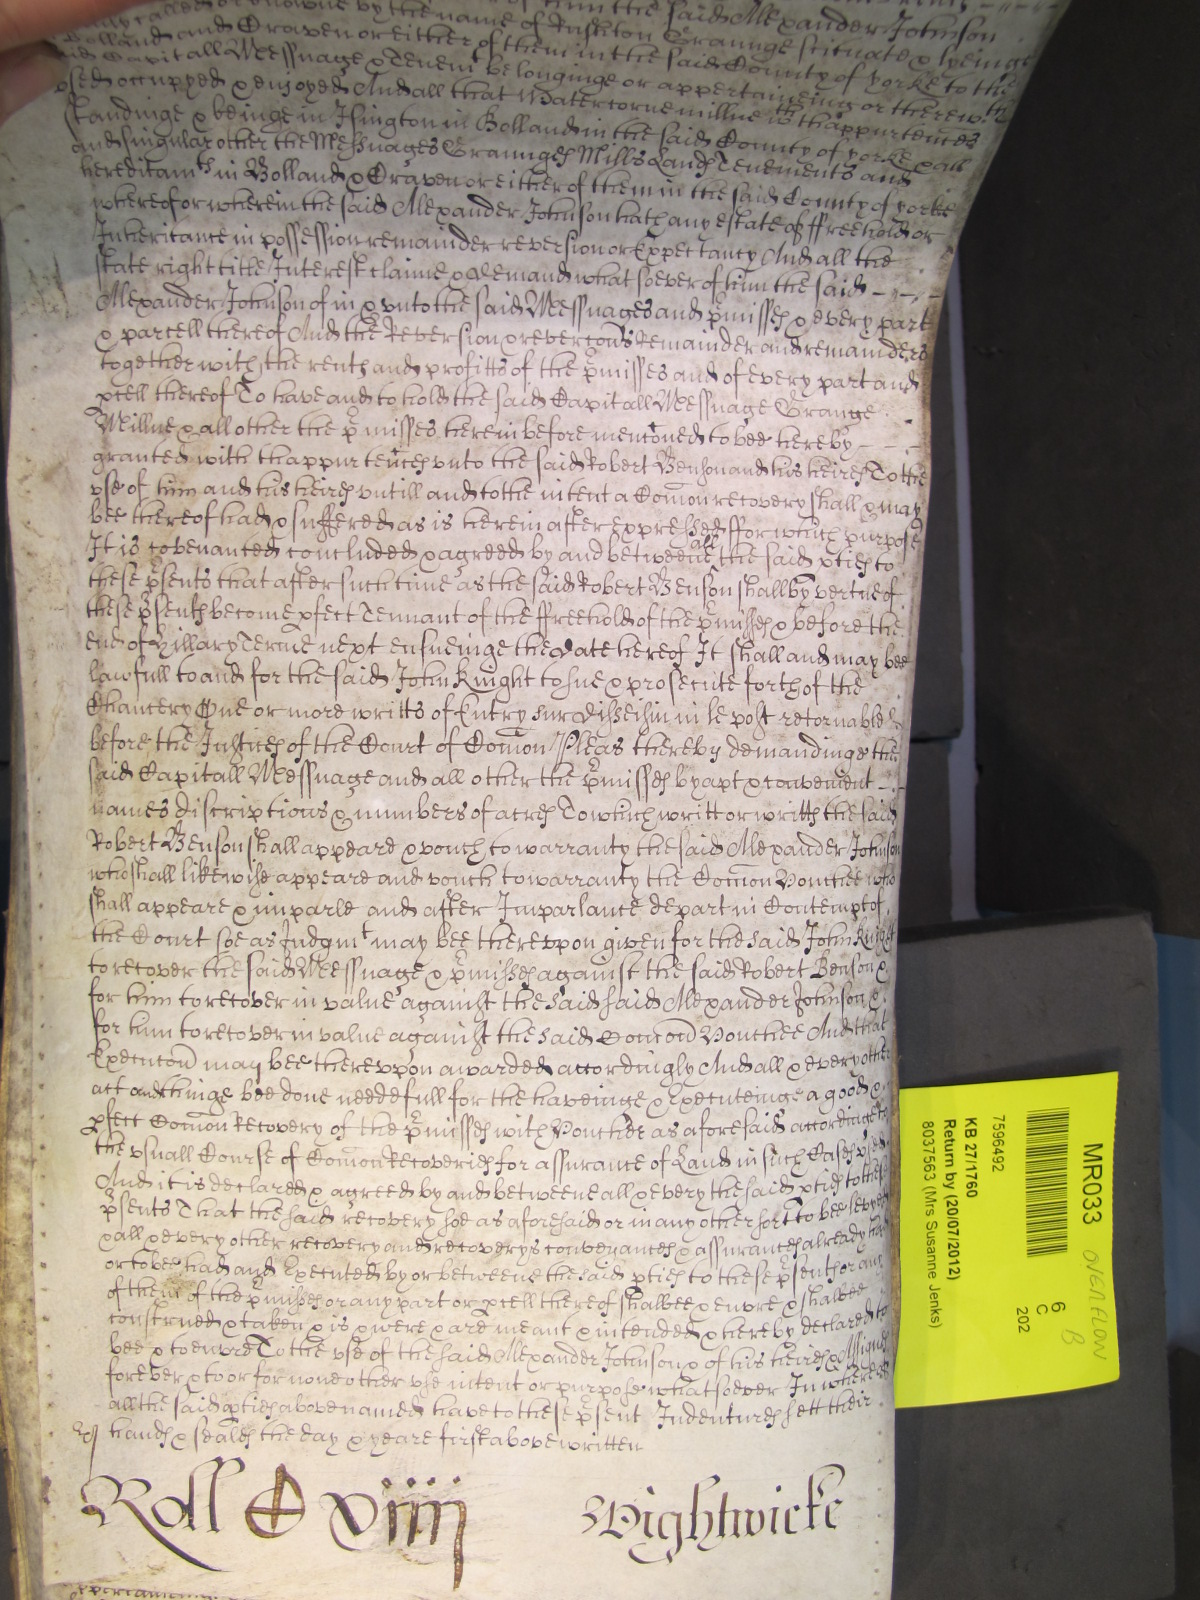 of him the said Alexander Johnson
called or knowne by the name of Rushton Graunge scituate & lyeinge
Bolland and Craven or either of them in the said County of Yorke to the
said Capitall Messuage & Tenemt belonginge or appertaineing or therewth
vsed occupyed & enjoyed And all that Watercorne millne wth thappurtences
standinge & beinge in Isington in Bolland in the said County of Yorke & all
and singular other the Messuages Graunges Mills Lands Tenements and
hereditamts in Bolland & Craven or either of them in the said County of Yorke
whereof or wherein the said Alexander Johnson hath any estate of ffreehold or
Inheritance in possession remainder reversion or Expectancy And all the
state right title Interest claime & demand whatsoever of him the said
Alexander Johnson of in & vnto the said Messuages and pmisses & every part
& parcell thereof And the Reversion & revercons Remainder and remainders
together with the rents and profitts of the pmisses and of every part and
pcell thereof To have and to hold the said Capitall Messuage Grange
Millne & all other the pmisses herein before menconed to bee hereby
granted with thappurtences vnto the said Robert Benson and his heires To the
vse of him and his heires vntill and to the intent a Comon recovery shall & may
bee thereof had & suffered as is herein after expressed ffor which purpose
It is covenanted concluded & agreed by and betweene all the said pties to
these psents that after such time as the said Robert Benson shall by vertue of
these psents become pfect Tennant of the ffreehold of the pmisses & before the
end of Hillary Terme next ensueinge the date hereof It shall and may bee
lawfull to and for the said John Knight to sue & prosecute forth of the
Chancery One or more writts of Entry sur disseisin in le post retornable
before the Justices of the Court of Comon Pleas thereby demandinge the
said Capitall Messuage and all other the pmisses by apt & convenient
names discriptions & numbers of acres To which writt or writts the said
Robert Benson shall appeare & vouch to warranty the said Alexander Johnson
who shall likewise appeare and vouch to warranty the Comon Vouchee who
shall appeare & imparle and after Imparlance depart in Contempt of
the Court soe as Judgmt may bee therevpon given for the said John Knight
to recover the said Messuage & pmisses against the said Robert Benson &
for him to recover in value against the said said Alexander Johnson &
for him to recover in value against the said Comon Vouchee And that
Execucon may bee therevpon awarded accordingly And all & every other
act and thinge bee done needefull for the haveinge & Executeinge a good &
pfect Comon Recovery of the pmisses with Voucher as aforesaid accordinge to
the vsuall Course of Comon Recoveries for assurance of Land in such Cases vsed
And it is declared & agreed by and betweene all & every the said pties to these
psents That the said recovery soe as aforesaid or in any other sort to bee
& all & every other recovery and recoverys conveyances & assurances already had
or to bee had and Executed by or betweene the said pties to these psents or any
of them of the pmisses or any part or pcell thereof shalbee & enure & shalbee
construed & taken & is & were & are meant & intended & hereby declared to
bee & to enure To the vse of the said Alexander Johnson & of his heires & Assignes
forever & to or for none other vse intent or purpose whatsoever In wittnes
all the said pties abovenamed have to these psent Indentures sett their
hands & seales the day & yeare first above written
Roll C xiiij Wightwicke
MR033 OVERFLOW
B
6
C
202
7596492
KB 27/1760
Return by (20/07/2012)
8037563 (Mrs Susanne Jenks)